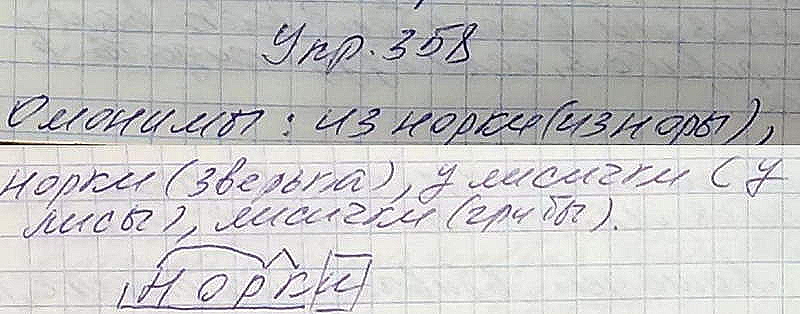 Упр. 358
Омонимы: из норки (из норы),
норки (зверька), у лисички (у
лисы), лисички (грибы).
норки